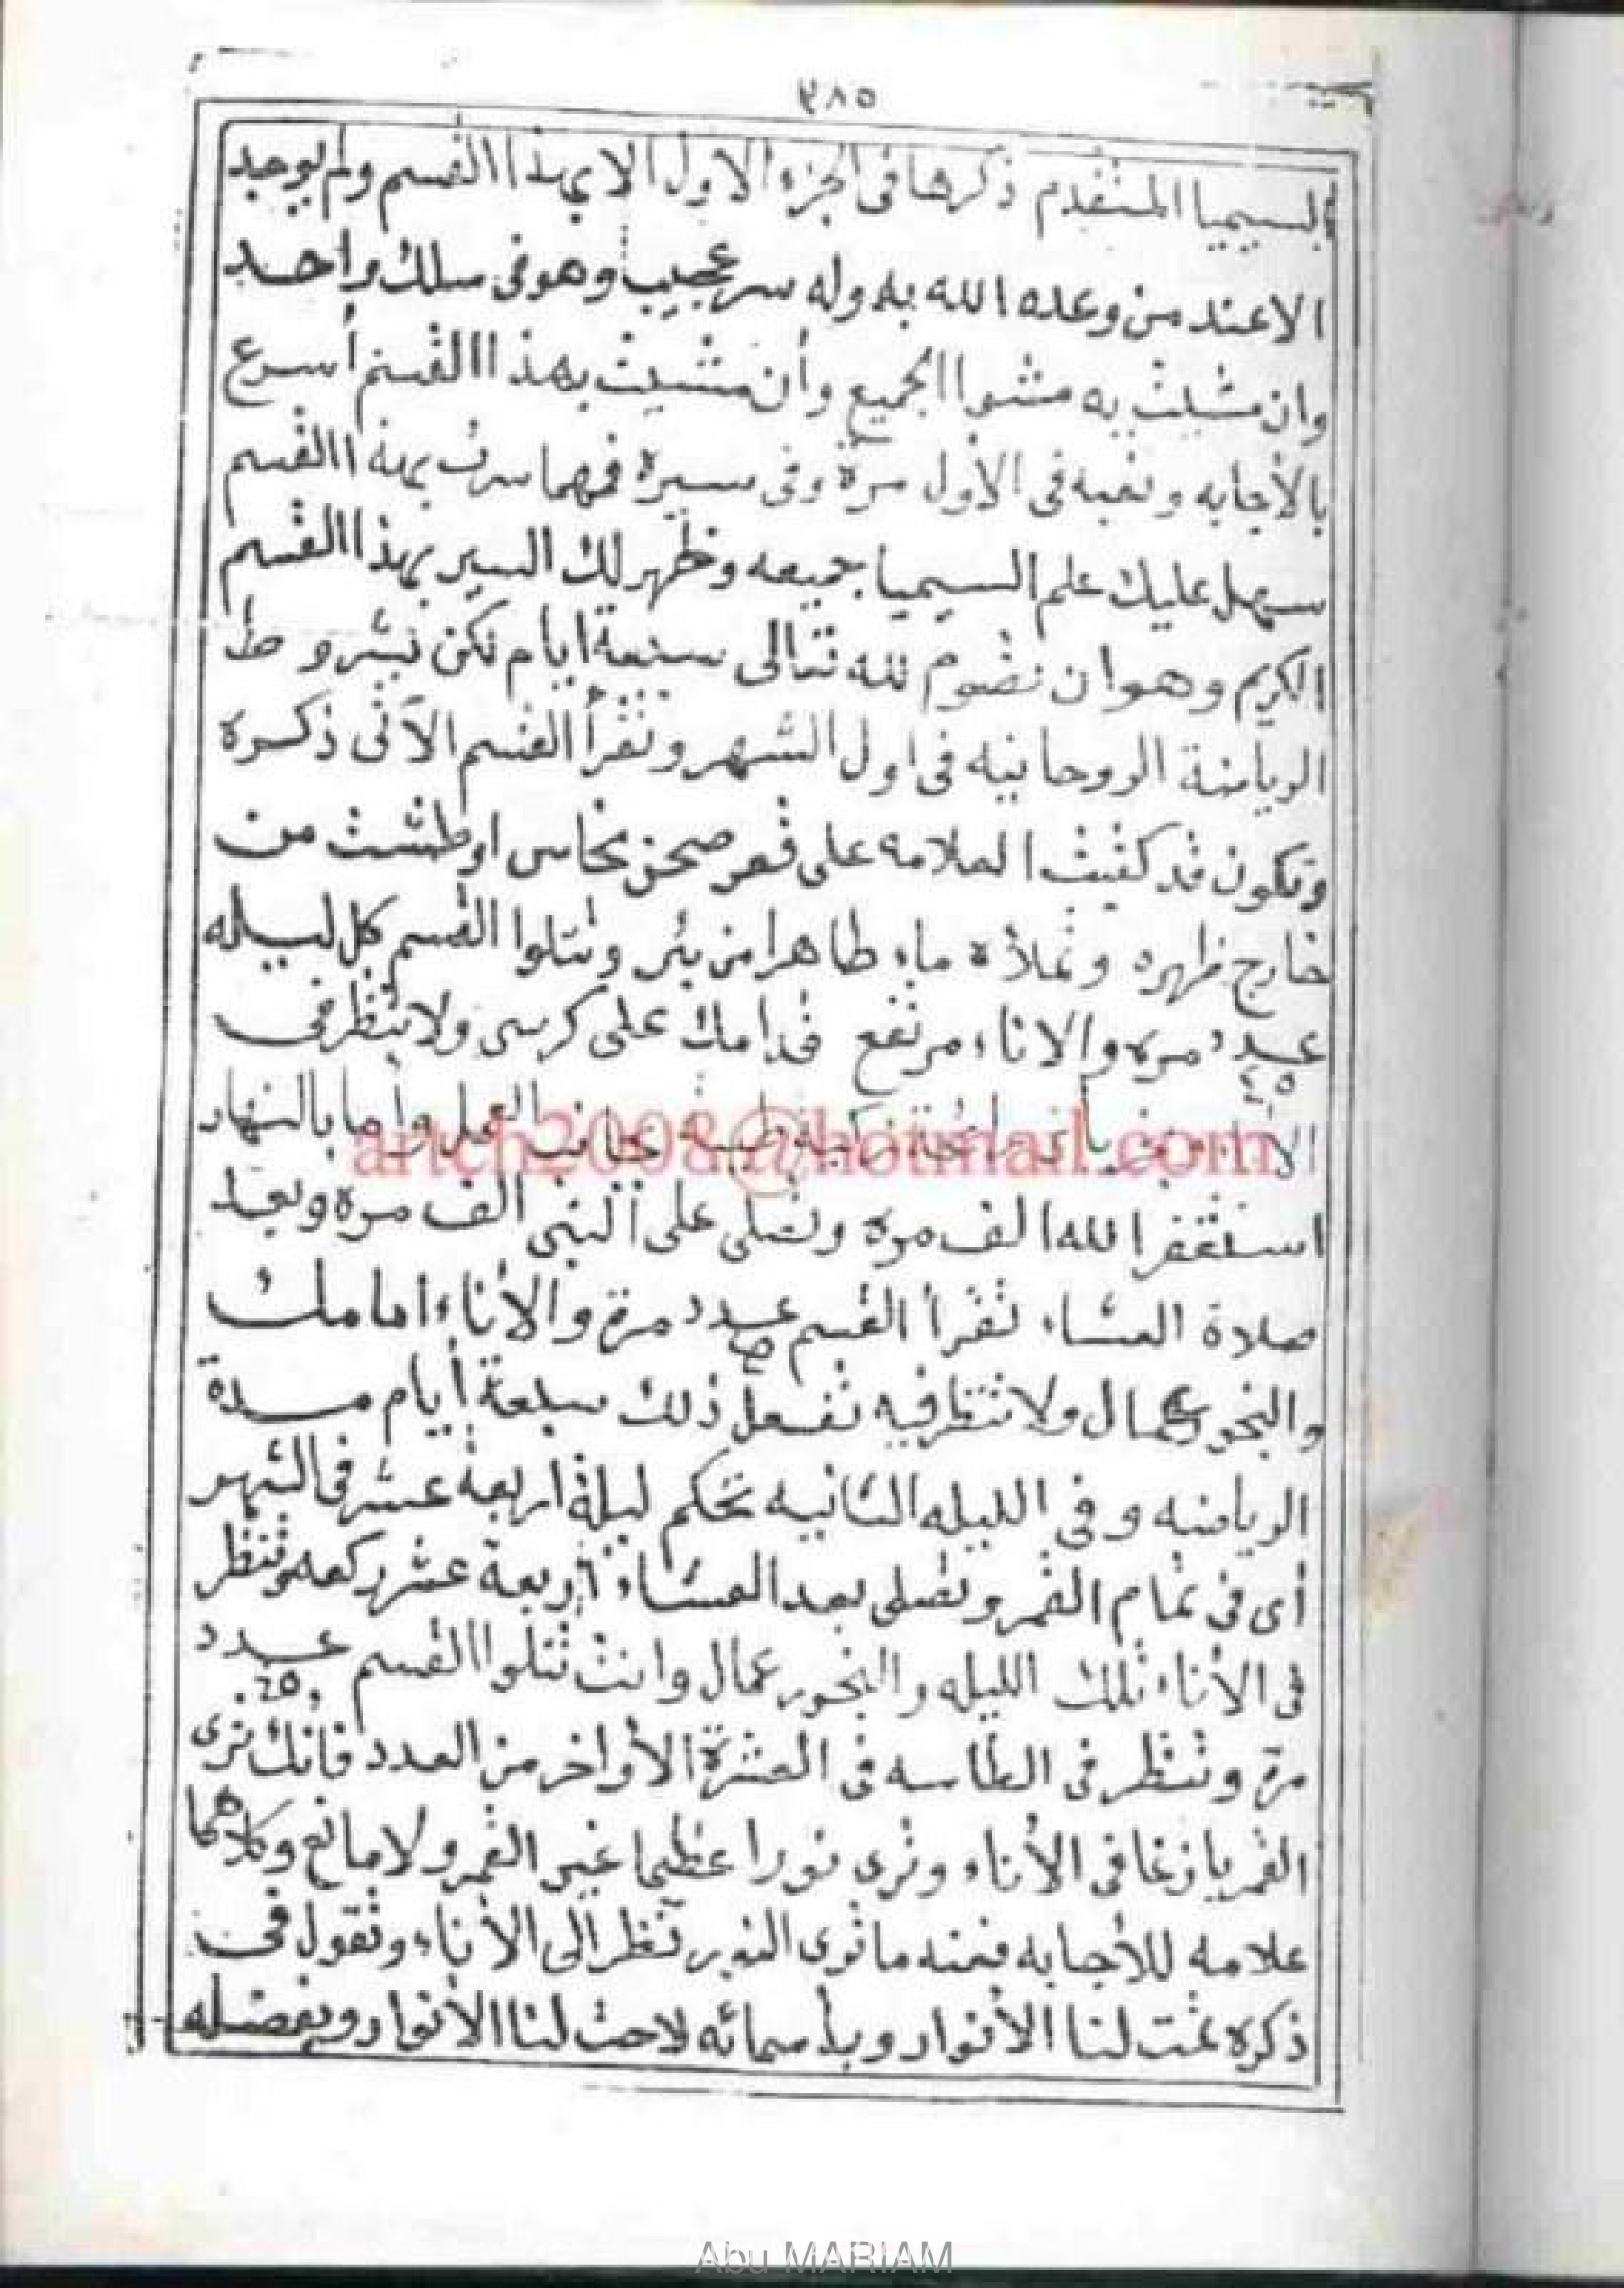 ٣٨٥
السيميا المتقدم ذكرها فى الجزء الاول الا بهذا القسم ولم يوجد
الا عند من وعده الله به وله سر عجيب وهو فى سلك واحد
وان مشيت به مشوا الجميع وأن مشيت بهذا القسم أسرع
بالأجابه وتعبه فى الأول مرة وفى سيره فمهما سرت بهذا القسم
سهل عليك علم السيميا جميعه وظهر لك السير بهذا القسم
الكريم وهو ان تصوم لله تتالى سبعة ايام تكن بشروط
الرياضة الروحانيه فى اول الشهر وتقرأ القسم الآتى ذكره
وتكون قد كتبت العلامه على قعر صحن نحاس او طشت من
خارج ظهره وتملأه ماء طاهرا من بئر وتتلوا القسم كل ليله
عدد ٤٥ مره والاناء مرتفع قدامك على كرسى ولا تنظر فى
الأناء العمل وأما بالنهار
استغفر الله الف مره وتصلى على النبى الف مره وبعد
صلاة العشاء تقرأ القسم عدد ٤٥ مرة والأناء امامك
والبخور عمال ولا تنظر فيه تفعل ذلك سبعة أيام مدة
الرياضه وفى الليله الثانيه تحكم ليلة اربعة عشر فى الشهر
أى فى تمام القمر وتصلى بعد العشاء أربعة عشر ركعه وتنظر
فى الأناء تلك الليله والبخور عمال وانت تتلوا القسم عدد
مرة وتنظر فى الطاسه فى العشرة الأواخر من العدد فأنك ترى
القمر بازغا فى الأناء وترى نورا عظيما غير القمر ولا مانع وكلاهما
علامه للأجابه فعند ما ترى النور تنظر الى الأناء وتقول فى
ذكره تمت لنا الأنوار وبأسمائه لاحت لنا الأنوار وبفضله
artch2008@hotmail.com
Abu MARIAM